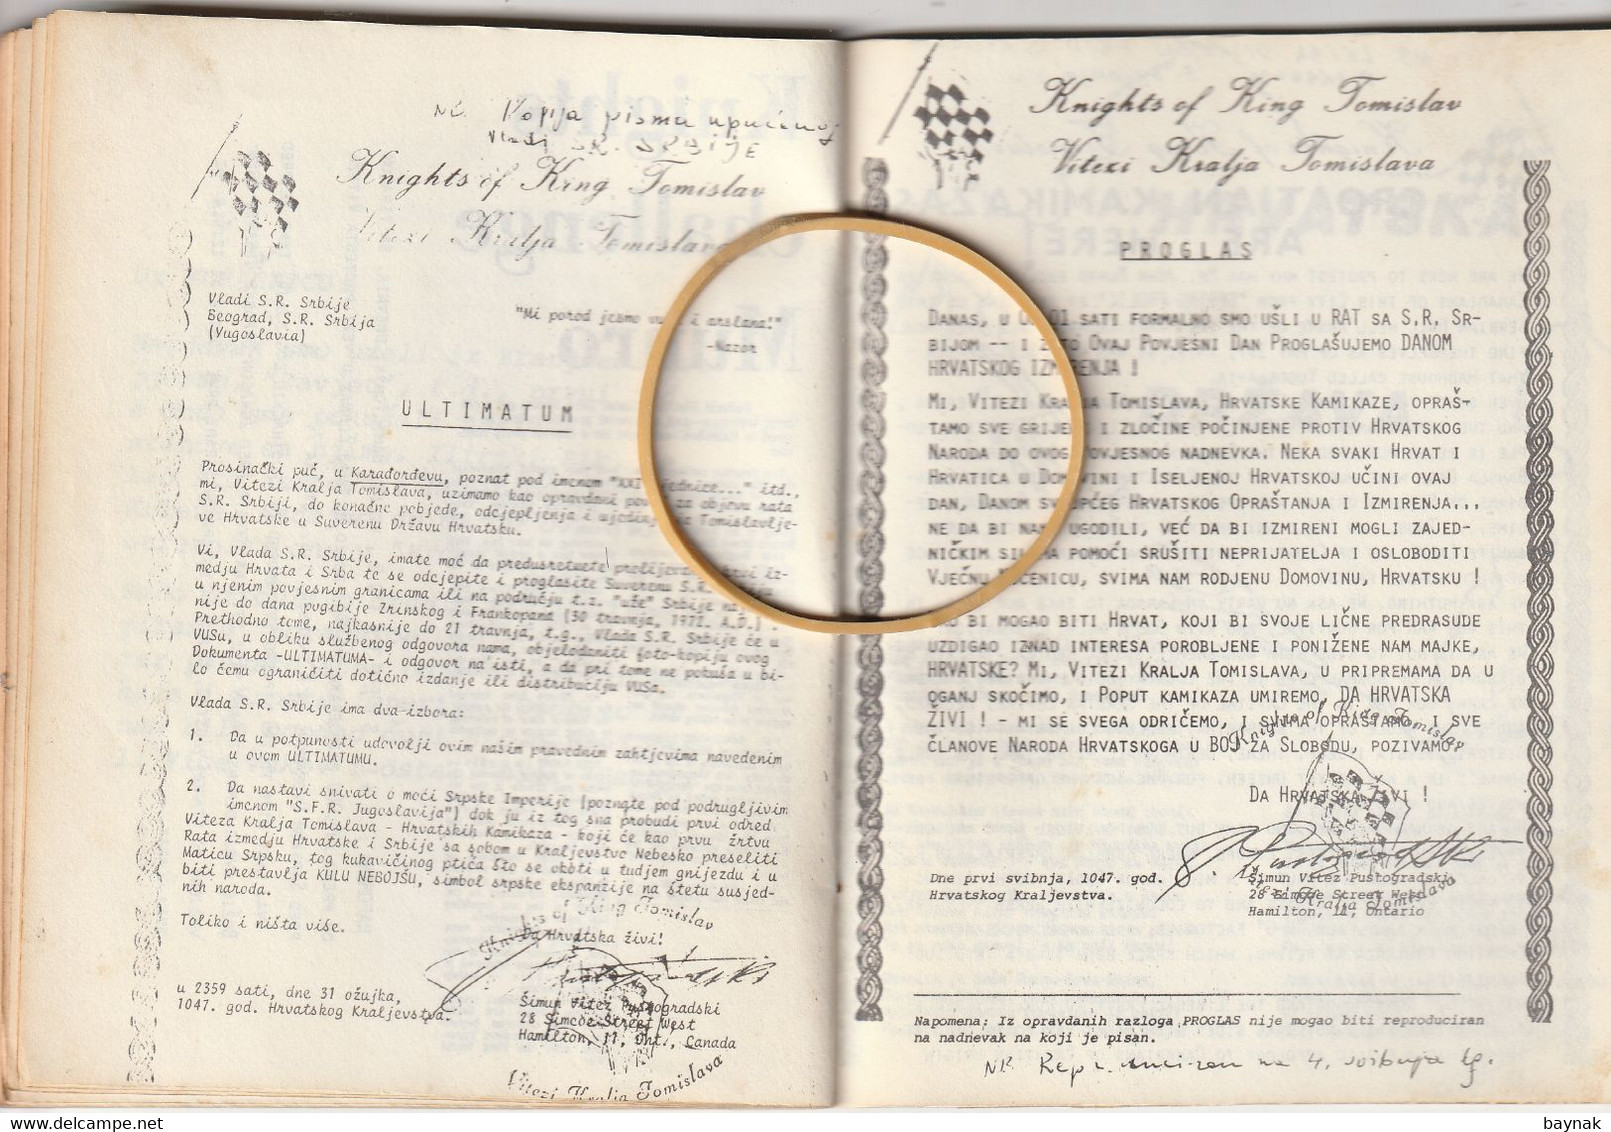 NB. Kopija pisma upućenog
Vladi S.R. SRBIJE
Knights of King Tomislav
Vitezi Kralja Tomislava
Vladi S.R. Srbije
Beograd, S.R. Srbija
(Yugoslavia)
"Mi porod jesmo i arslana!"
-Nazor
ULTIMATUM
Prosinački puč, u Karađorđevu, poznat pod imenom "XXI itd.,
mi, Vitezi Kralja Tomislava, uzimamo kao opravdani za objavu rata
S.R. Srbiji, do konačne pobjede, odcjepljenja i Tomislavlje-
ve Hrvatske u Suverenu Državu Hrvatsku.
Vi, Vlada S.R. Srbije, imate moć da predusretnete iz-
medju Hrvata i Srba te se odcjepite i proglasite Suverenu S.R.
u njenim povjesnim granicama ili na području t.z. "uže" Srbije
nije do dana pugibije Zrinskog i Frankopana (30 travnja, 1972. A.D.)
Prethodno tome, najkasnije do 21 travnja, t.g., Vlada S.R. Srbije će u
VUSu, u obliku službenog odgovora nama, objelodaniti foto-kopiju ovog
Dokumenta -ULTIMATUMA- i odgovor na isti, a da pri tome ne pokuša u bi-
lo čemu ograničiti dotično izdanje ili distribuciju VUSa.
Vlada S.R. Srbije ima dva-izbora:
1. Da u potpunosti udovolji ovim našim pravednim zahtjevima navedenim
u ovom ULTIMATUMU.
2. Da nastavi snivati o moći Srpske Imperije (poznate pod podrugljivim
imenom "S.F.R. Jugoslavija") dok ju iz tog sna probudi prvi odred
Viteza Kralja Tomislava - Hrvatskih Kamikaza - koji će kao prvu žrtvu
Rata izmedju Hrvatske i Srbije sa sobom u Kraljevstvo Nebesko preseliti
Maticu Srpsku, tog kukavičinog ptića što se okoti u tudjem gnijezdu i u
biti prestavlja KULU NEBOJŠU, simbol srpske ekspanzije na štetu susjed-
nih naroda.
Toliko i ništa više.
Da Hrvatska živi!
u 2359 sati, dne 31 ožujka,
1047. god. Hrvatskog Kraljevstva.
Šimun Vitez Pustogradski
28 Simcoe Street West
Hamilton, 11, Ont., Canada
Knights of King Tomislav
Vitezi Kralja Tomislava
Knights of King Tomislav
Vitezi Kralja Tomislava
PROGLAS
DANAS, U SATI FORMALNO SMO UŠLI U RAT SA S.R. SR-
BIJOM -- I OVAJ POVJESNI DAN PROGLAŠUJEMO DANOM
HRVATSKOG IZMIRENJA !
MI, VITEZI KRALJA TOMISLAVA, HRVATSKE KAMIKAZE, OPRAŠ-
TAMO SVE GRIJEHE I ZLOČINE POČINJENE PROTIV HRVATSKOG
NARODA DO OVOG POVJESNOG NADNEVKA. NEKA SVAKI HRVAT I
HRVATICA U DOMOVINI I ISELJENOJ HRVATSKOJ UČINI OVAJ
DAN, DANOM SVEOPĆEG HRVATSKOG OPRAŠTANJA I IZMIRENJA...
NE DA BI NAM UGODILI, VEĆ DA BI IZMIRENI MOGLI ZAJED-
NIČKIM SILAMA POMOĆI SRUŠITI NEPRIJATELJA I OSLOBODITI
VJEČNU MUČENICU, SVIMA NAM RODJENU DOMOVINU, HRVATSKU !
BI MOGAO BITI HRVAT, KOJI BI SVOJE LIČNE PREDRASUDE
UZDIGAO IZNAD INTERESA POROBLJENE I PONIŽENE NAM MAJKE,
HRVATSKE? MI, VITEZI KRALJA TOMISLAVA, U PRIPREMAMA DA U
OGANJ SKOČIMO, I POPUT KAMIKAZA UMIREMO, DA HRVATSKA
ŽIVI ! - MI SE SVEGA ODRIČEMO, I SVIMA OPRAŠTAMO, I SVE
ČLANOVE NARODA HRVATSKOGA U BOJ ZA SLOBODU, POZIVAMO.
DA HRVATSKA ŽIVI !
Knights of King Tomislav
Vitezi Kralja Tomislava
Dne prvi svibnja, 1047. god.
Hrvatskog Kraljevstva.
Šimun Vitez Pustogradski
28 Simcoe Street West
Hamilton, 11, Ontario
Napomena: Iz opravdanih razloga PROGLAS nije mogao biti reproduciran
na nadnevak na koji je pisan.
NB. na 4. svibnja tg.
baynak